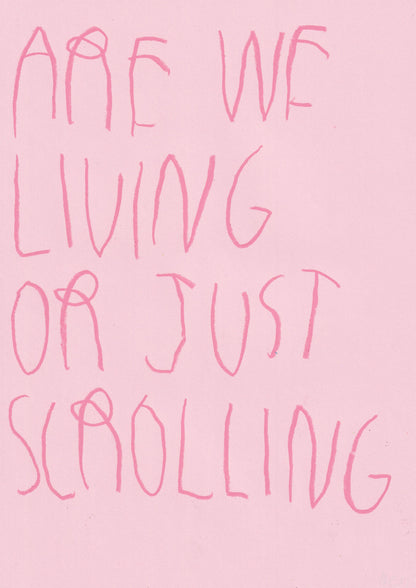 ARE WE
LIVING
OR JUST
SCROLLING